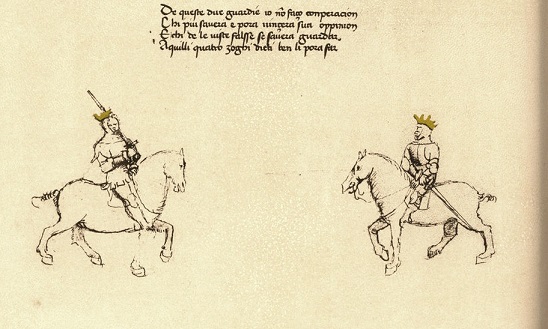 De queste due guardie io nō faço conperacion
Chi piu savera e pora vinçera sua oppinion
E chi de le viste falsse se savera guardar
Aquilli quatro zoghi dieti ben li pora far